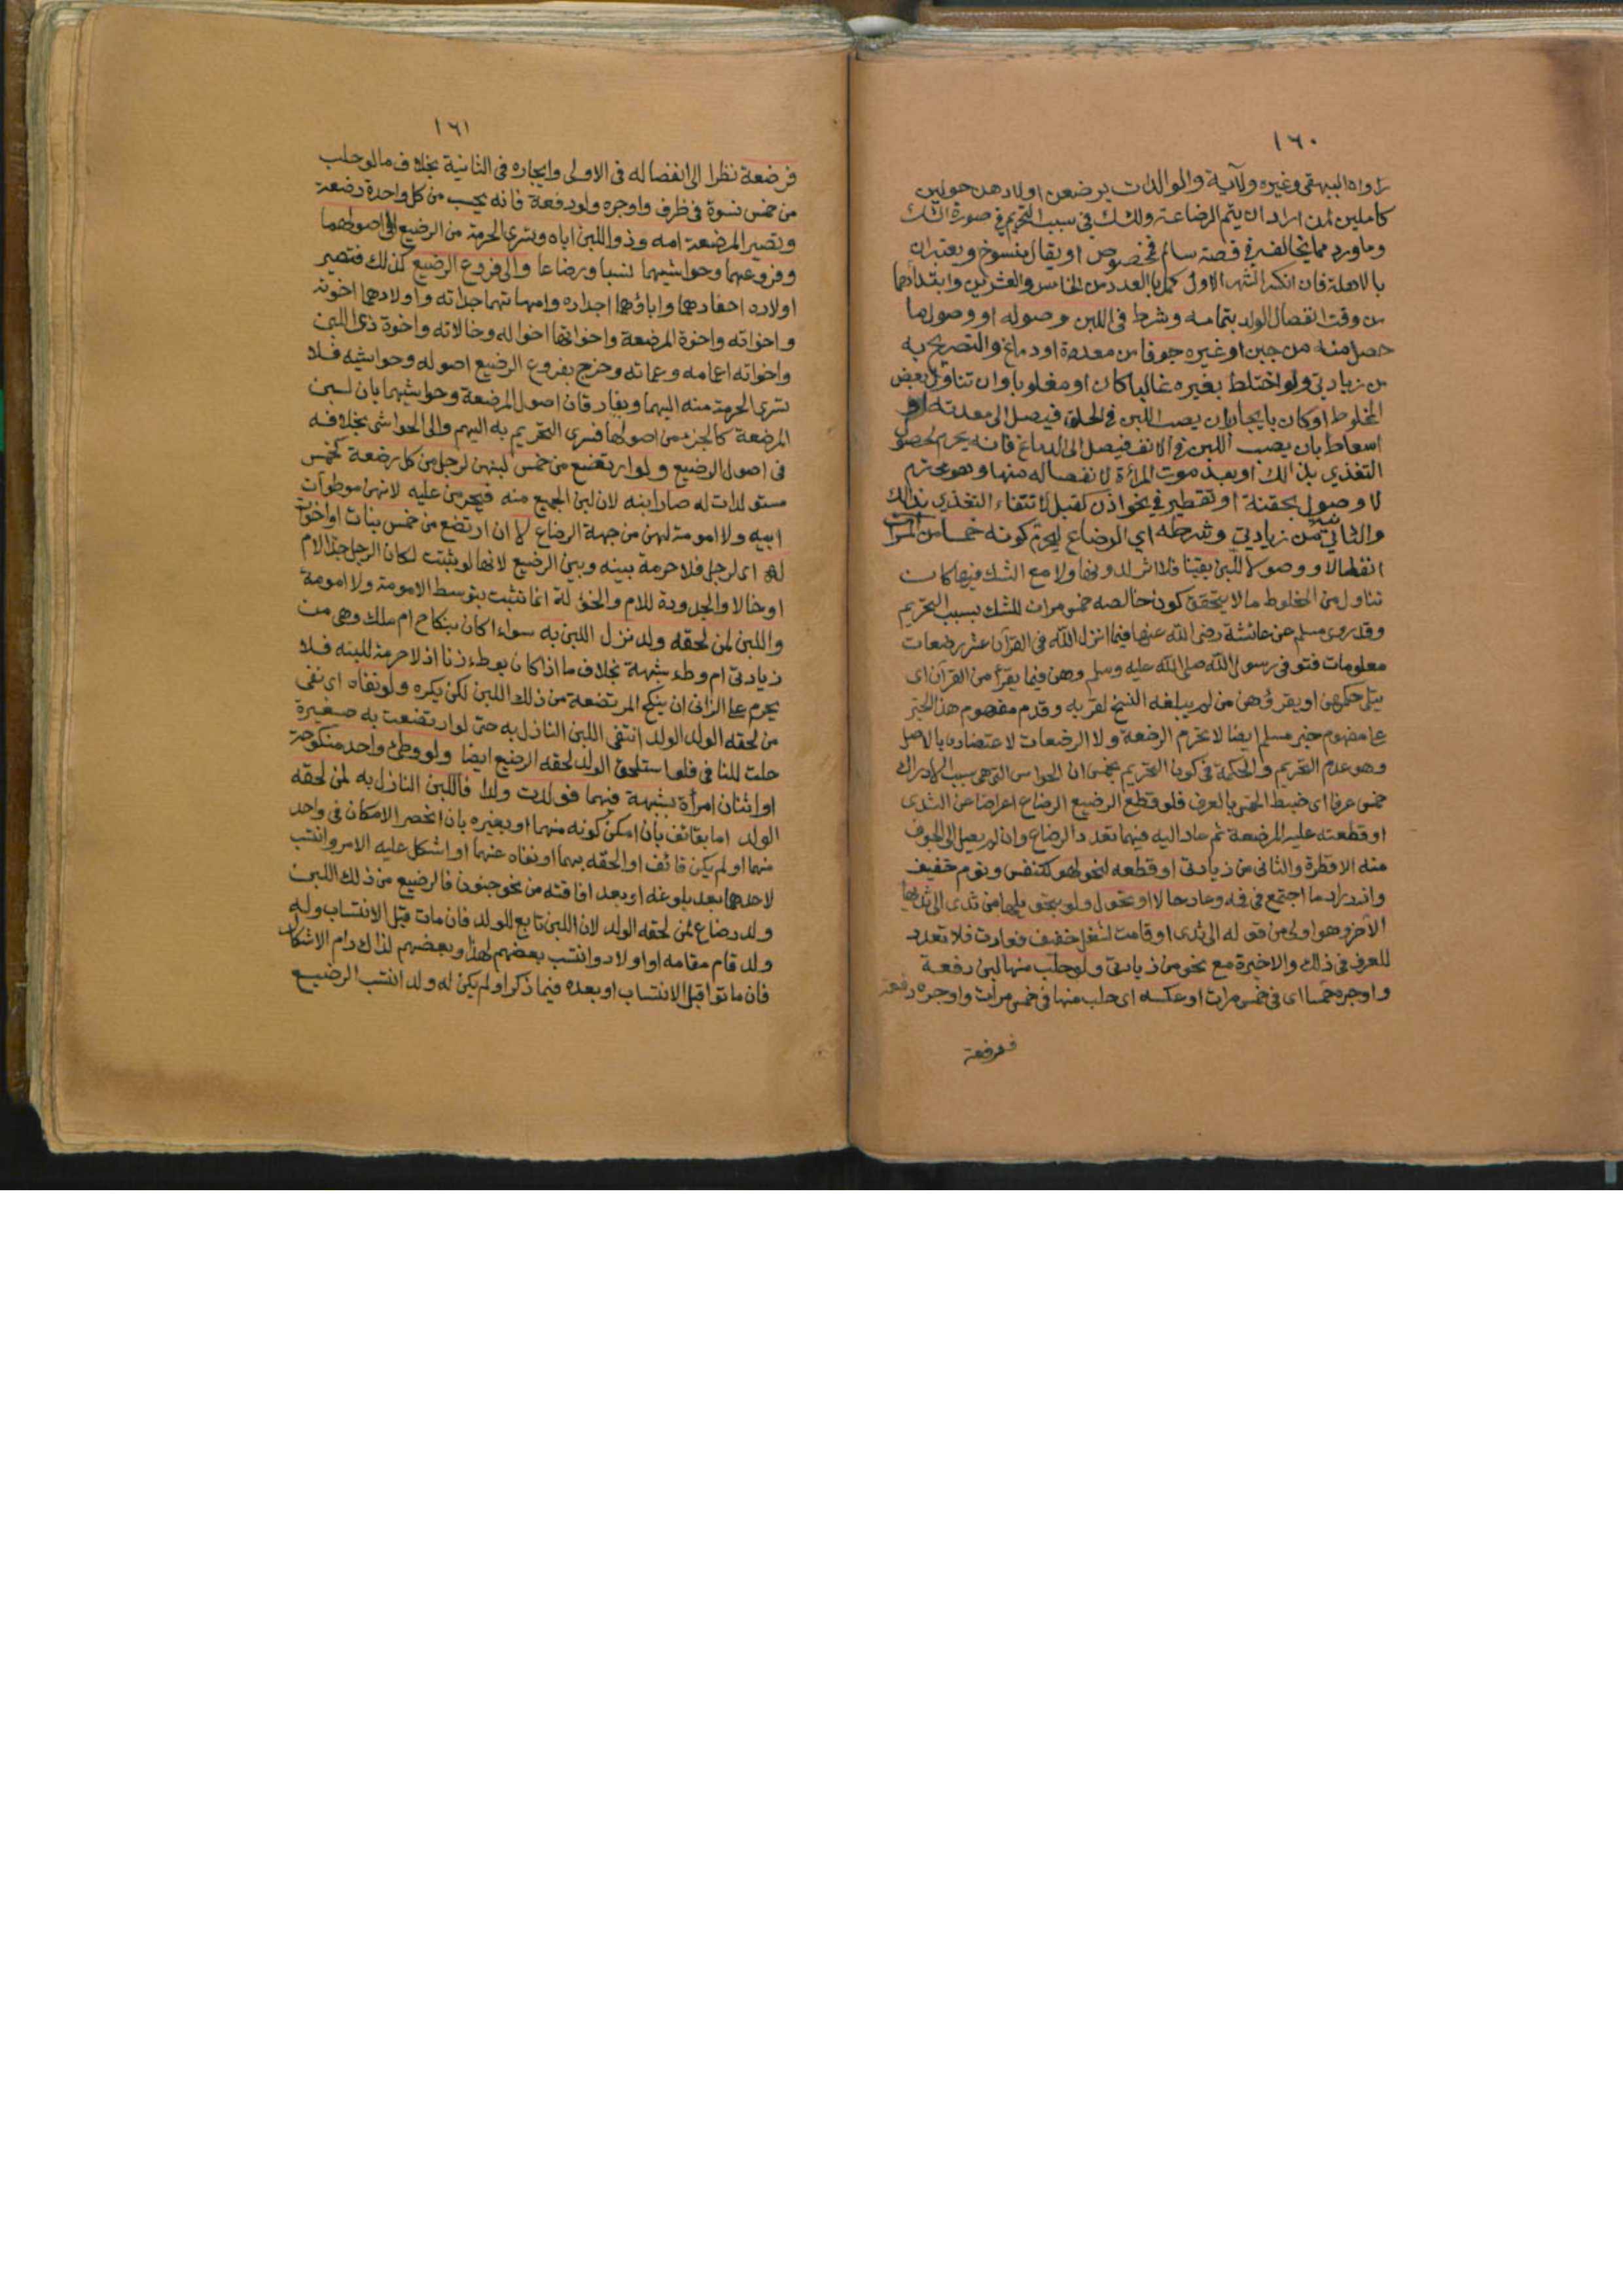 ١٦٠
رواه البيهقي وغيره ولآية والوالدات يرضعن اولادهن حولين
كاملين لمن اراد ان يتم الرضاعة وللشك في سبب التحريم في صورة الشك
وما ورد مما يخالفه في قصة سالم فمخصوص او يقال منسوخ ويعتبران
بالاهلة فان انكسر الشهر الاول كمل بالعدد من الخامس والعشرين وابتداؤهما
من وقت انفصال الولد بتمامه وشرط في اللبن وصوله او وصول ما
حصل منه من جبن او غيره جوفا من معدة او دماغ والتصريح به
من زيادتي ولو اختلط بغيره غالبا كان او مغلوبا وان تناول بعض
المخلوط او كان بايجار بان يصب اللبن في الحلق فيصل الى معدته او
اسعاط بان يصب اللبن في الانف فيصل الى الدماغ فانه يحرم لحصول
التغذي بذالك او بعد موت المرأة لانفصاله منها وهو محترم
لا وصوله بحقنة او تقطير في نحو اذن كقبل لانتفاء التغذي بذالك
والثانية من زيادتي وشرطه اي الرضاع ليحرم كونه خمسا من المرات
انفصالا ووصولا للبن يقينا فلا اثر لدونها ولا مع الشك فيها كان
تناول من المخلوط ما لا يتحقق كون خالصه خمس مرات للشك بسبب التحريم
وقد روى مسلم عن عائشة رضى الله عنها فيما انزل الله في القرآن عشر رضعات
معلومات فتوفى رسول الله صلى الله عليه وسلم وهن فيما يقرأ من القرآن اى
يتلى حكمهن او يقرؤهن من لم يبلغه النسخ لقربه وقدم مفهوم هذا الخبر
على مفهوم خبر مسلم ايضا لا تحرم الرضعة ولا الرضعات لاعتضاده بالاصل
وهو عدم التحريم والحكمة في كون التحريم بخمس ان الحواس التي هى سبب الادراك
خمس عرفا اى ضبط الخمس بالعرف فلو قطع الرضيع الرضاع اعراضا عن الثدى
او قطعته عليه المرضعة ثم عاد اليه فيهما تعدد الرضاع وان لم يصل الى الجوف
منه الا قطرة والثانى من زيادتى او قطعه لنحو لهو كتنفس ونوم خفيف
وازدراد ما اجتمع في فيه وعاد حالا او تحول ولو بتحويلها من ثدى الى ثديها
الآخر وهو اولى من قوله الى ثدى او قامت لشغل خفيف فعادت فلا تعدد
للعرف في ذلك والاخيرة مع نحو من زيادتى ولو حلب منها لبن دفعة
واوجره خمسا اى في خمس مرات او عكسه اى حلب منها في خمس مرات واوجره دفعة
فرضعة
١٦١
فرضعة نظرا الى انفصاله في الاولى وايجاره في الثانية بخلاف ما لو حلب
من خمس نسوة في ظرف واوجره ولو دفعة فانه يحسب من كل واحدة رضعة
وتصير المرضعة امه وذو اللبن اباه وتسرى الحرمة من الرضيع الى اصولهما
وفروعهما وحواشيهما نسبا ورضاعا والى فروع الرضيع كذلك فتصير
اولاده احفادهما واباؤهما اجداده وامهاتهما جداته واولادهما اخوته
واخواته واخوة المرضعة واخواتها اخواله وخالاته واخوة ذى اللبن
واخواته اعمامه وعماته وخرج بفروع الرضيع اصوله وحواشيه فلا
تسرى الحرمة منه اليهما ويفارقان اصول المرضعة وحواشيهما بان لبن
المرضعة كالجزء من اصولها فسرى التحريم به اليهم والى الحواشى بخلافه
في اصول الرضيع ولو ارتضع من خمس لبنهن لرجل من كل رضعة كخمس
مستولدات له صار ابنه لان لبن الجميع منه فيحرمن عليه لانهن موطوآت
ابيه ولا امومة لهن من جهة الرضاع لا ان ارتضع من خمس بنات او اخوات
له اى لرجل فلا حرمة بينه وبين الرضيع لانها لو ثبتت لكان الرجل جدا لام
او خالا والجدودة للام والخؤلة انما تثبت بتوسط الامومة ولا امومة
واللبن لمن لحقه ولد نزل اللبن به سواء اكان بنكاح ام ملك وهى من
زيادتى ام وطء شبهة بخلاف ما اذا كان بوطء زنا اذ لا حرمة للبنه فلا
يحرم على الزانى ان ينكح المرتضعة من ذلك اللبن لكن يكره ولو نفاه اى نفى
من لحقه الولد الولد انتفى اللبن النازل به حتى لو ارتضعت به صغيرة
حلت للنافى فلو استلحق الولد لحقه الرضيع ايضا ولو وطئ واحد منكوحة
او اثنان امرأة بشبهة فيهما فولدت ولدا فاللبن النازل به لمن لحقه
الولد اما بقائف بان امكن كونه منهما او بغيره بان انحصر الامكان في واحد
منهما او لم يكن قائف او الحقه بهما او نفاه عنهما او اشكل عليه الامر وانتسب
لاحدهما بعد بلوغه او بعد افاقته من نحو جنون فالرضيع من ذلك اللبن
ولد رضاع لمن لحقه الولد لان اللبن تابع للولد فان مات قبل الانتساب وله
ولد قام مقامه او اولاد وانتسب بعضهم لهذا وبعضهم لذاك دام الاشكال
فان ماتوا قبل الانتساب او بعده فيما ذكر او لم يكن له ولد انتسب الرضيع